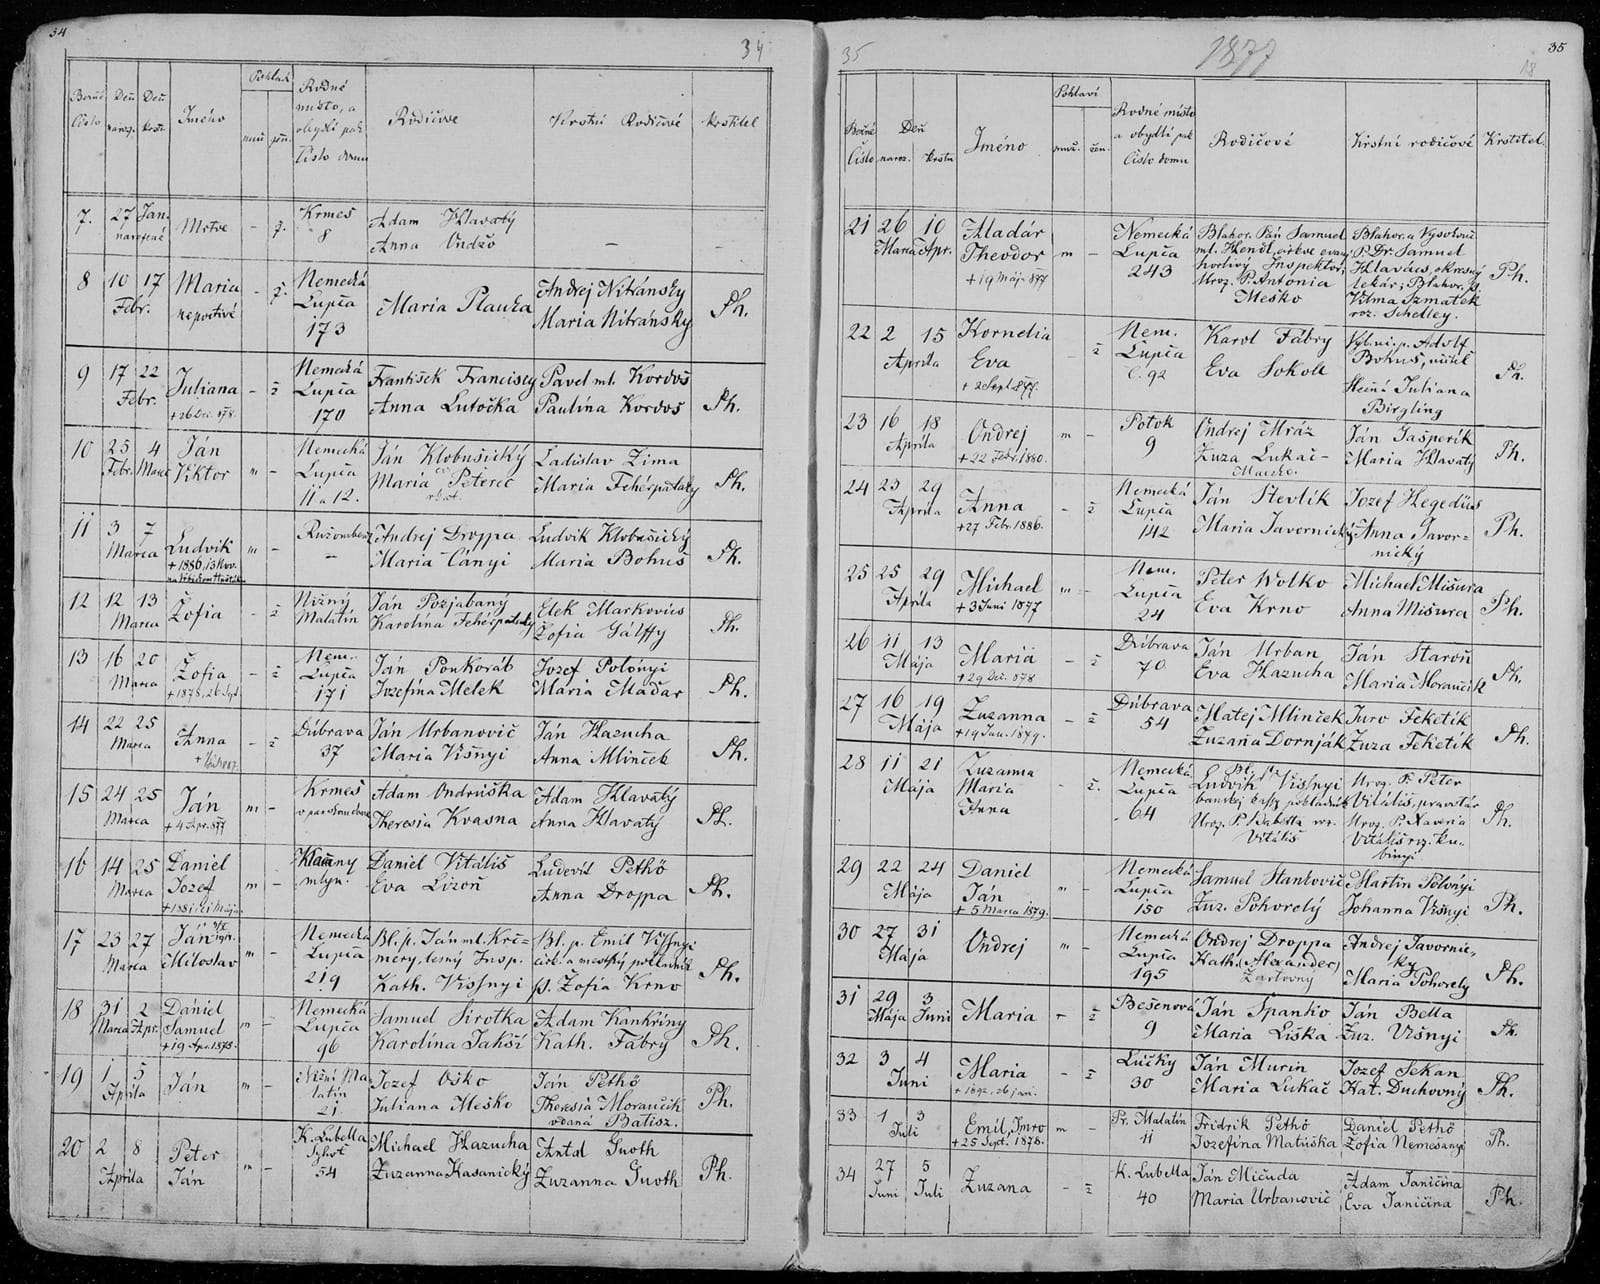 34
34
Pohlaví
Běžné
Číslo
Deň
naroz.
Deň
krstu
Jméno
muž.
žen.
Rodné
místo, a
obydlí pak
Číslo domu
Rodičové
Krstní Rodičové
Krstitel
7.
27 Jan.
narozené
Mrtve
- ž.
Krmeš
8
Adam Hlavatý
Anna Ondžo
-
-
8
10 17
Febr.
Maria
nepoctivé
- ž.
Nemecká
Lupča
173
Maria Plauka
Andrej Nitránsky
Maria Nitránsky
Ph.
9
17 22
Febr.
Juliana
+26 Dec. 878.
- ž
Nemecká
Lupča
170
František Franciscy
Anna Lutočka
Pavel ml. Kordoš
Paulína Kordoš
Ph.
10
25 4
Febr. Marca
Ján
Viktor
m -
Nemecká
Lupča
11 a 12.
Ján Klobušický
Maria Peterec
Ladislav Zima
Maria Fehérpataky
Ph.
11
3 7
Marca
Ludvik
+1886, 13 Nov.
m -
Ružomberk
-
Andrej Droppa
Maria Cányi
Ludvik Klobušický
Maria Bohuš
Ph.
12
12 13
Marca
Žofia
- ž
Nižný
Malatín
Ján Pozjabaný
Karolína Fehérpataky
Elek Markovics
Žofia Gálffy
Ph.
13
16 20
Marca
Žofia
+1878, 26 Sept.
- ž
Nem.
Lupča
171
Ján Ponkoráb
Jozefína Melek
Jozef Polónyi
Mária Maďar
Ph.
14
22 25
Marca
Anna
- ž
Dúbrava
37
Ján Urbanovič
Maria Višnyi
Ján Hazucha
Anna Mlinček
Ph.
15
24 25
Marca
Ján
+4 Apr. 877
m -
Krmeš
Adam Ondruška
Theresia Kvasna
Adam Hlavatý
Anna Hlavatý
Ph.
16
14 25
Marca
Daniel
Jozef
m -
mlyn.
Daniel Vitališ
Eva Lizoň
Ludevít Pethö
Anna Droppa
Ph.
17
23 27
Marca
Ján
Miloslav
m -
Nemecká
Lupča
219
Bl. p. Ján ml. Krč=
méry, lesný Insp.
Kath. Vissnyi
Bl. p. Emil Vissnyi
cirk. a mestský pokladník
p. Žofia Krno
Ph.
18
31 2
Marca Apr.
Daniel
Samuel
+19 Apr. 1878.
m -
Nemecká
Lupča
96
Samuel Sirotka
Karolína Jakši
Adam Kankríny
Kath. Fábry
Ph.
19
1 5
Apríla
Ján
m -
Nižní Ma
latín
21
Jozef Oško
Juliana Meško
Ján Pethö
Theresia Morančík
vdaná Batisz.
Ph.
20
2 8
Apríla
Peter
Ján
m -
K. Lubella
54
Michael Hazucha
Zuzanna Kasanický
Antal Guoth
Zuzanna Guoth
Ph.
35
1877
35
18
Pohlaví
Běžné
Číslo
Deň
naroz.
krstu
Jméno
muž.
žen.
Rodné místo
a obydlí pak
Číslo domu
Rodičové
Krstní rodičové
Krstitel.
21
26 10
Marca Apr.
Aladár
Theodor
+19 Máj. 877
m -
Nemecká
Lupča
243
Blahor. Pán Samuel
ml. Hendl, církve evanj.
horlivý Inspektor,
Uroz. P. Antónia
Meško
Blahor. a Vysokouč.
P. Dr. Samuel
Hlavács, okresný
lekár; Blahor. p.
Vilma Szmatek
roz. Schelley.
Ph.
22
2 15
Apríla
Kornelia
Eva
+ 2 Sept. 877.
- ž
Nem.
Lupča
č. 92
Karol Fábry
Eva Sokoll
Adolf
Bohuš, učitel
Juliana
Birgling
Ph.
23
16 18
Apríla
Ondrej
+22 Febr. 1880.
m -
Potok
9
Ondrej Mráz
Zuza Lukáč-
Ján Jašperík
Maria Hlavatý
Ph.
24
23 29
Apríla
Anna
+27 Febr. 1886.
- ž
Nemecká
Lupča
142
Ján Stevlík
Maria Javornický
Jozef Hegedüs
Anna Javor=
nický
Ph.
25
25 29
Apríla
Michael
+3 Juni 1877
m -
Nem.
Lupča
24
Peter Wolko
Eva Krno
Michael Mišura
Anna Mišura
Ph.
26
11 13
Mája
Maria
+29 Dec. 878
- ž
Dúbrava
70
Ján Urban
Eva Hazucha
Ján Staroň
Maria Morančík
Ph.
27
16 19
Mája
Zuzanna
+19 Jan. 1879.
- ž
Dúbrava
54
Matej Mlinček
Zuzana Dornják
Juro Feketík
Zuza Feketík
Ph.
28
11 21
Mája
Zuzanna
Maria
Anna
- ž.
Nemecká
Lupča
64
Ludvik Vissnyi
Vitális
Uroz. P. Peter
Vitális, pravotár
Uroz. P. Xaveria
Vitális roz. Ku-
binyi
Ph.
29
22 24
Mája
Daniel
Ján
+ 5 Marca 1879.
m -
Nemecká
Lupča
150
Samuel Stankovič
Zuz. Pohorelý
Martin Polónyi
Johanna Višnyi
Ph.
30
27 31
Mája
Ondrej
m -
Nemecká
Lupča
195
Ondrej Droppa
Kath. (Alexander)
Žartovný
Andrej Javornic,
ky
Maria Pohorelý
Ph.
31
29 3
Mája Juni
Maria
- ž
Bešenová
9
Ján Španko
Maria Liška
Ján Bella
Zuz. Višnyi
Ph.
32
3 4
Juni
Maria
+ 1892, 26 jan.
- ž
Lúčky
30
Ján Murin
Maria Lukáč
Jozef Sekan
Kat. Duchovný
Ph.
33
1 3
Juli
Emil, Imro
+25 Sept. 1878.
m -
Pr. Malatín
11
Fridrik Pethö
Jozefína Matuška
Daniel Pethö
Žofia Nemešányi
Ph.
34
27 5
Juni Juli
Zuzana
- ž
K. Lubella
40
Ján Mičuda
Maria Urbanovič
Adam Janičina
Eva Janičina
Ph.